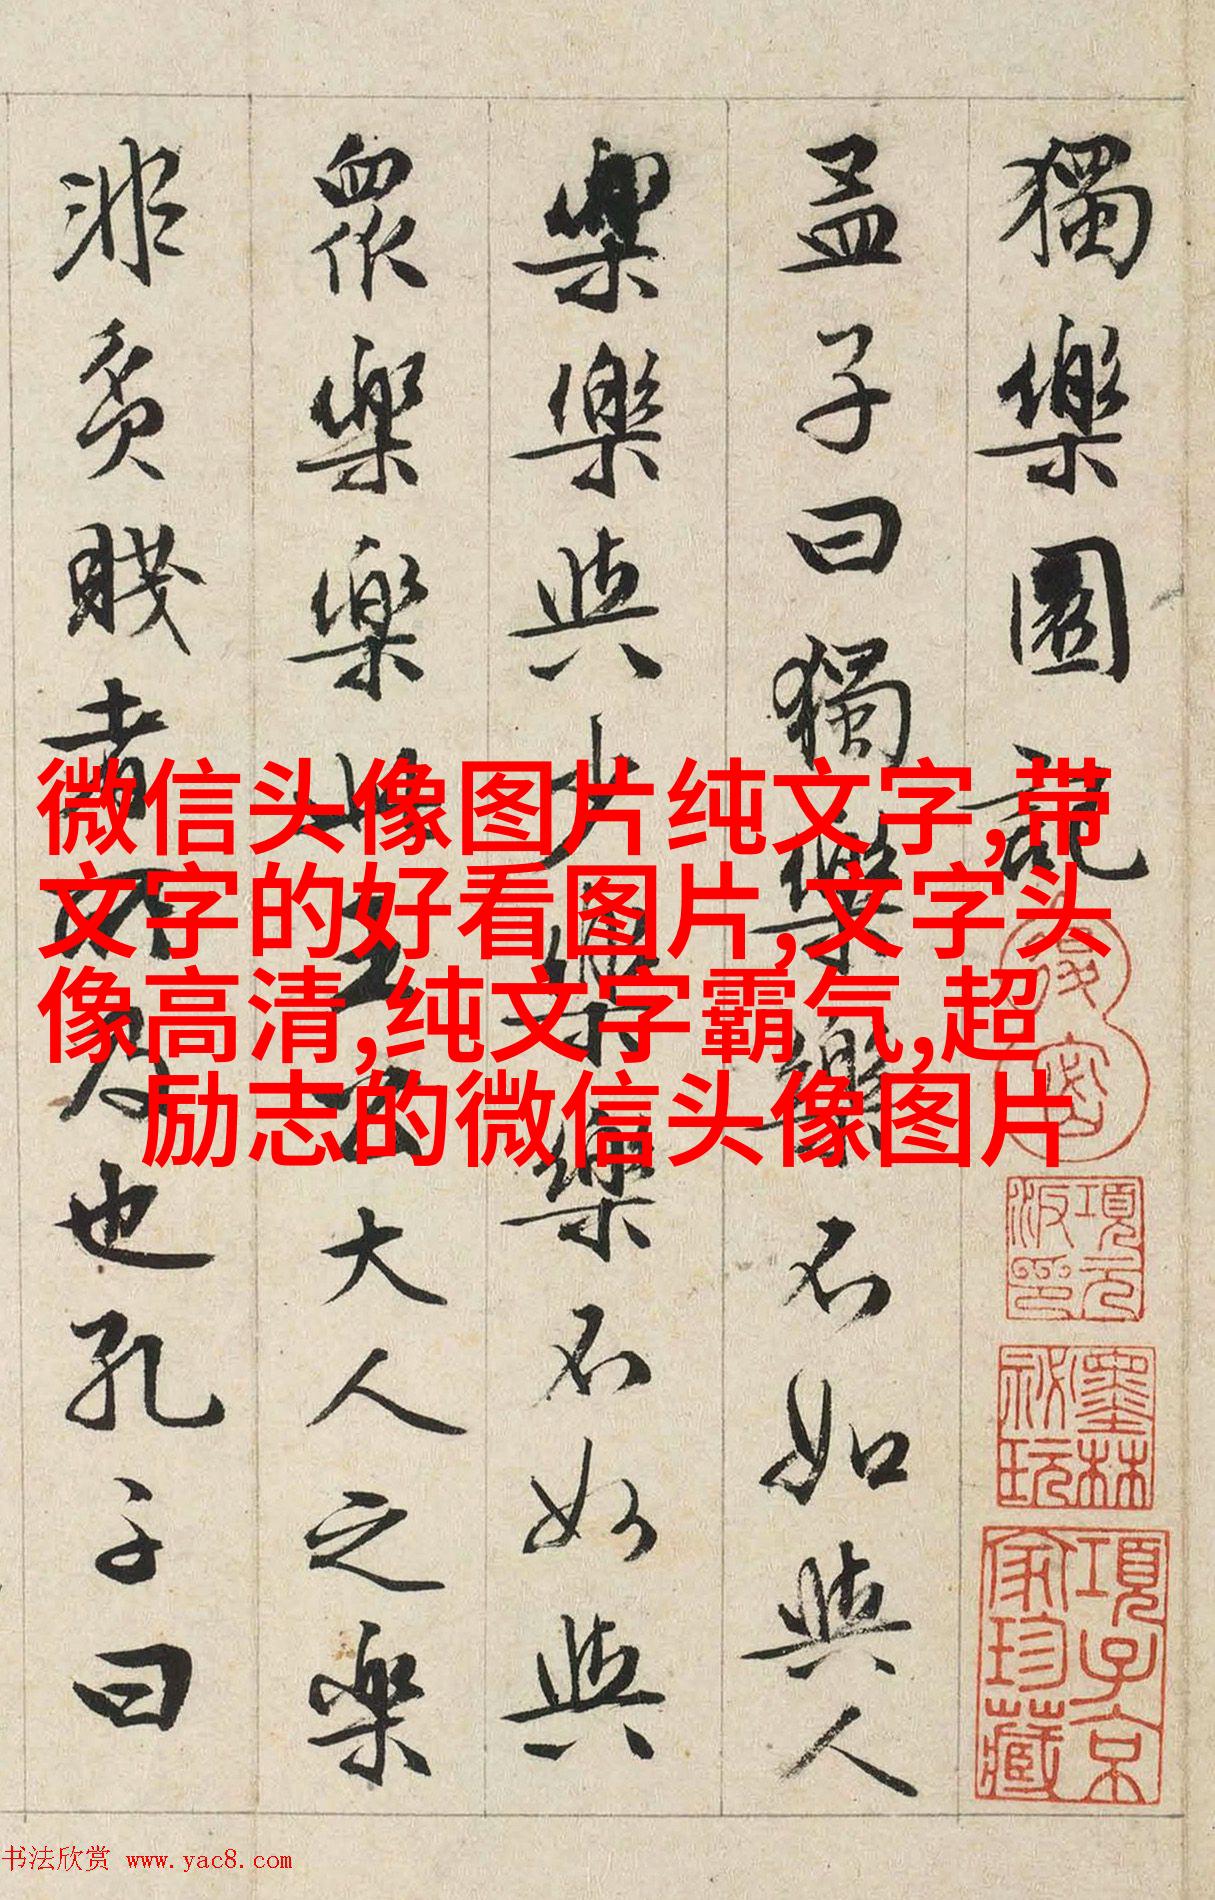 獨樂園記
孟子曰獨樂樂不如與人
樂樂與少樂樂不如與
衆樂樂此王公大人之樂
非貧賤者所及也孔子曰
微信头像图片纯文字,带
文字的好看图片,文字头
像高清,纯文字霸气,超
励志的微信头像图片
項元汴印
墨林祕玩
項子京家珍藏
书法欣赏 www.yac8.com